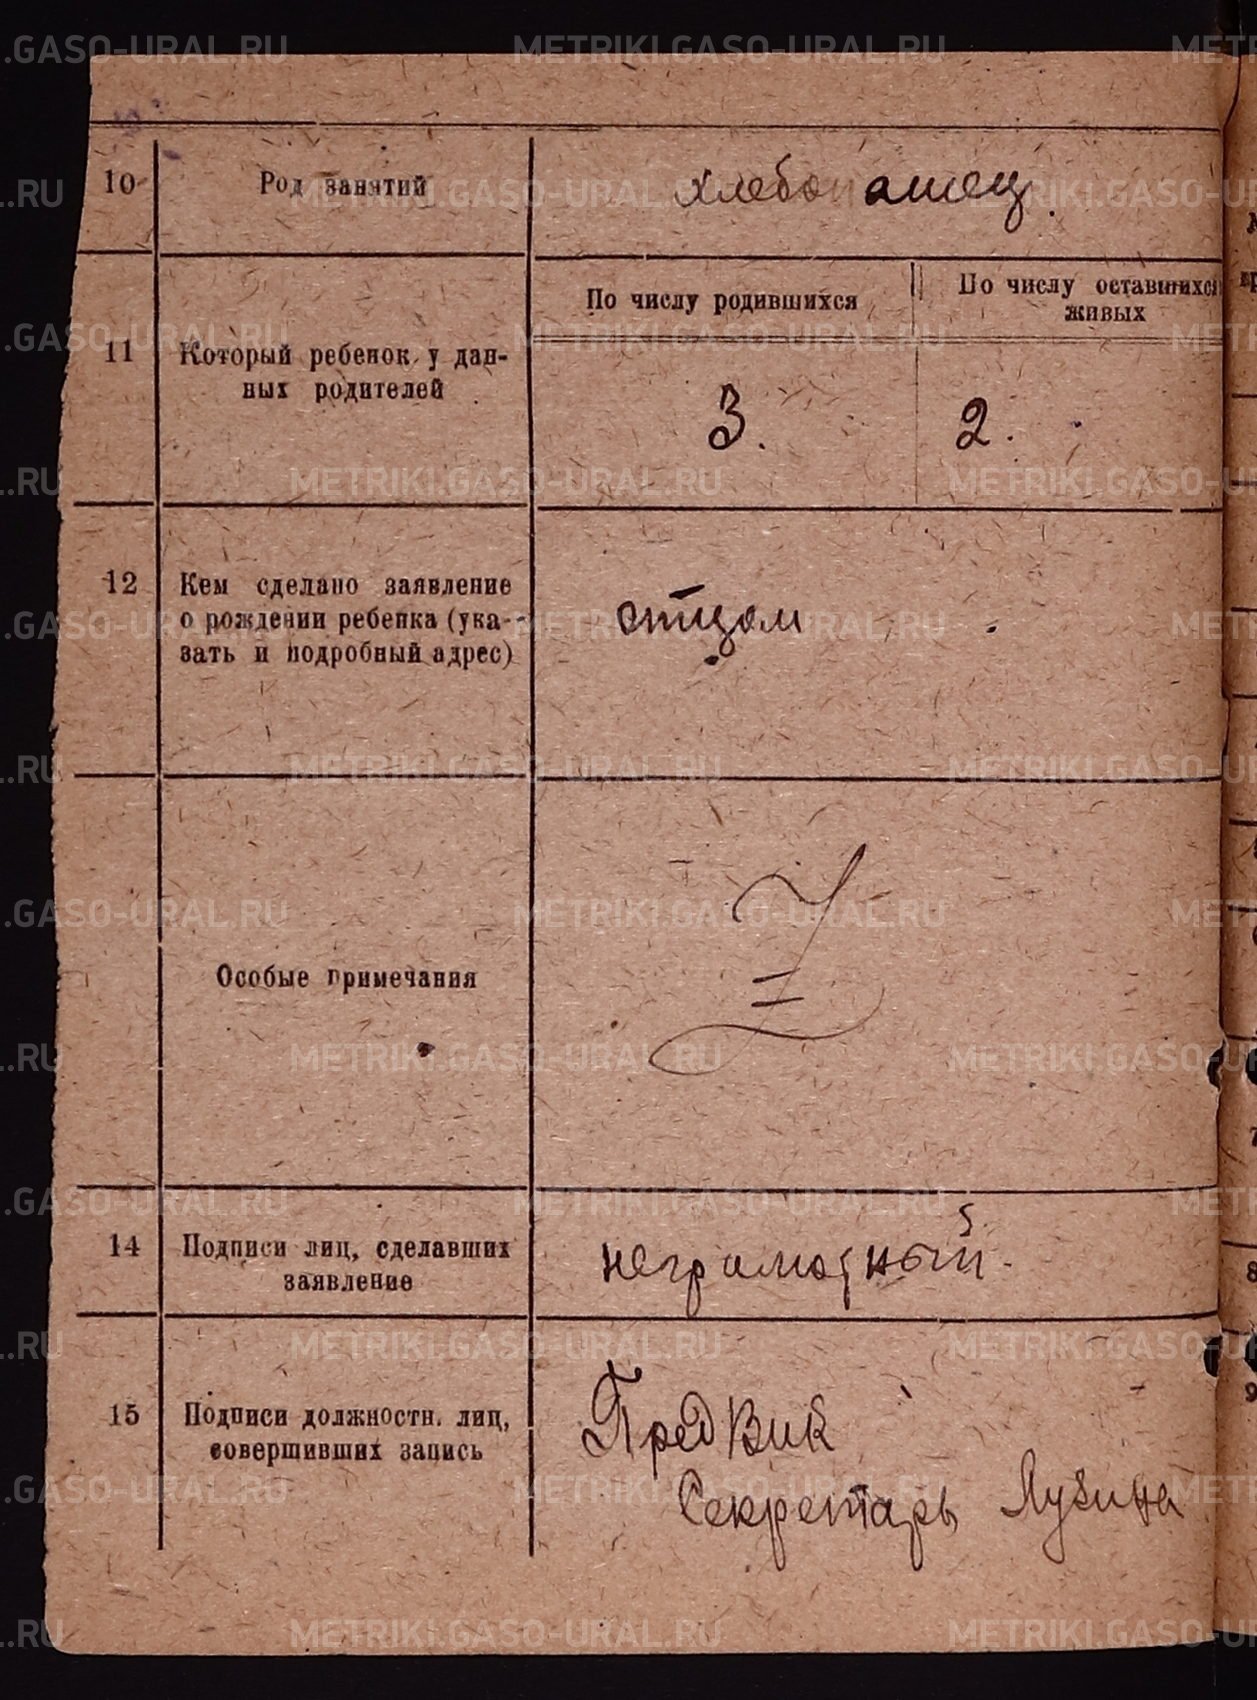 10 Род занятий хлебопашец.
По числу родившихся По числу оставшихся
живых
11 Который ребенок у дан-
ных родителей
3. 2.
12 Кем сделано заявление
о рождении ребенка (ука-
зать и подробный адрес)
отцом
Особые примечания
14 Подписи лиц, сделавших
заявление
неграмотный.
15 Подписи должностн. лиц,
совершивших запись
ПредВик
Секретарь
METRIKI.GASO-URAL.RU